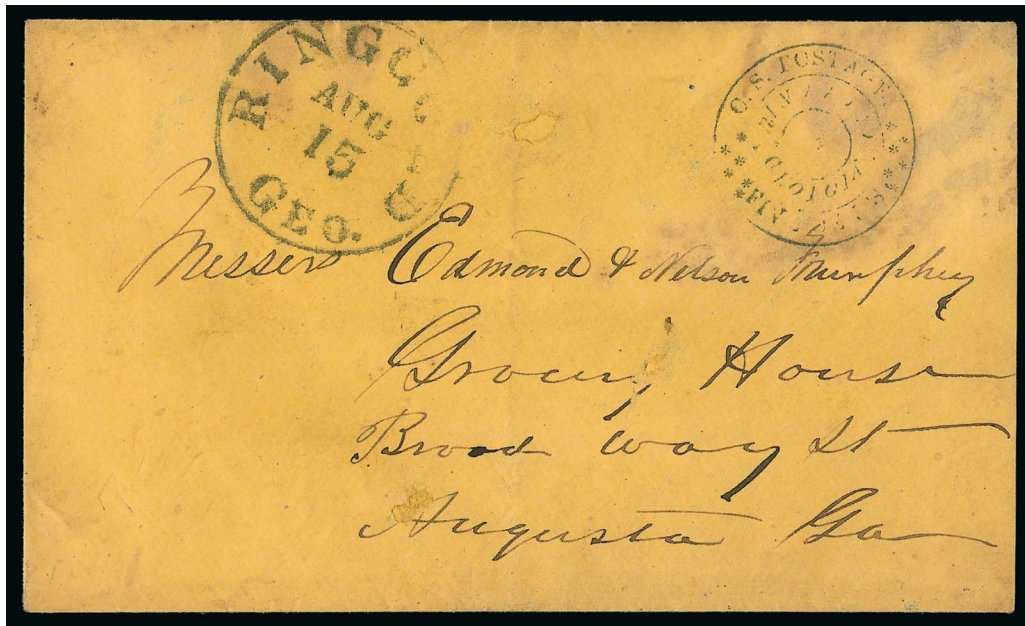 RINGG
AUG
15
GEO.
C. S. POSTAGE
FIVE CENTS
GEORGIA
Messers Edmond & Nelson Murphey
Grocery House
Broad way St
Augusta Ga